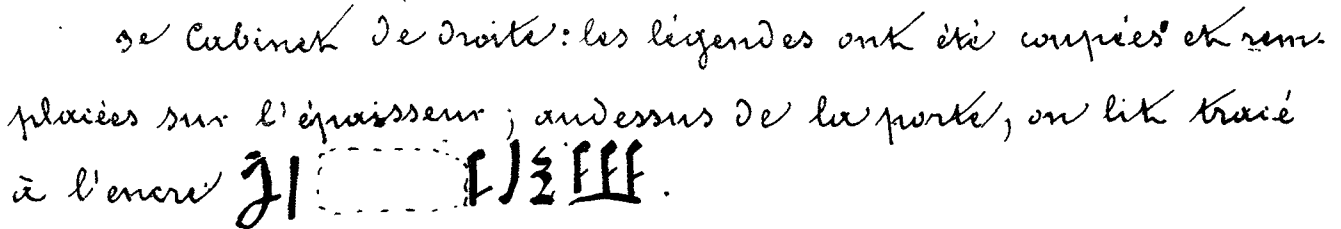 3e Cabinet de droite: les légendes ont été coupées et rem-
placées sur l'épaisseur; audessus de la porte, on lit tracé
à l'encre